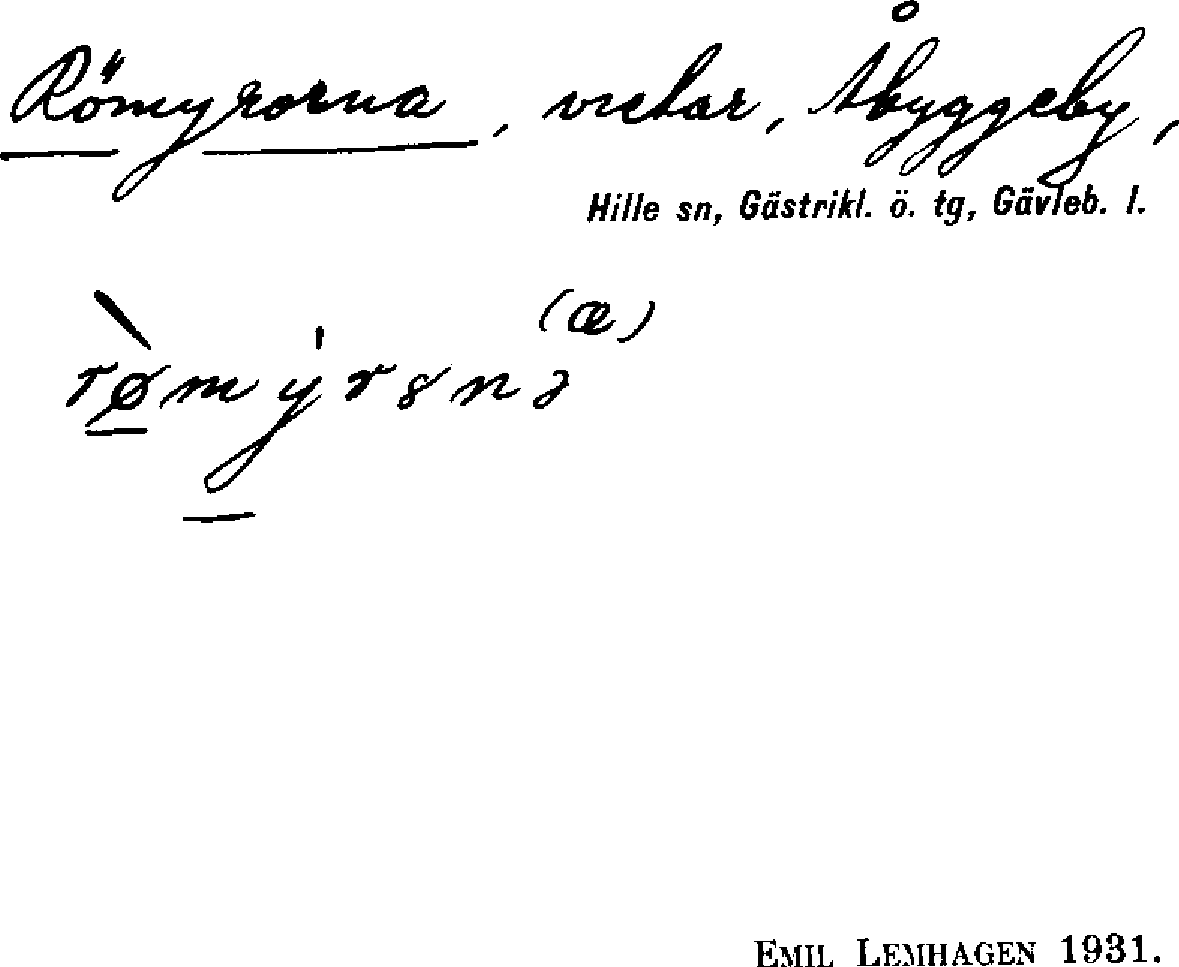 Römyrorna, vretar, Åbyggeby,
Hille sn, Gästrikl. ö. tg, Gävleb. l.
(æ)
rø̀mýrsnə
EMIL LEMHAGEN 1931.